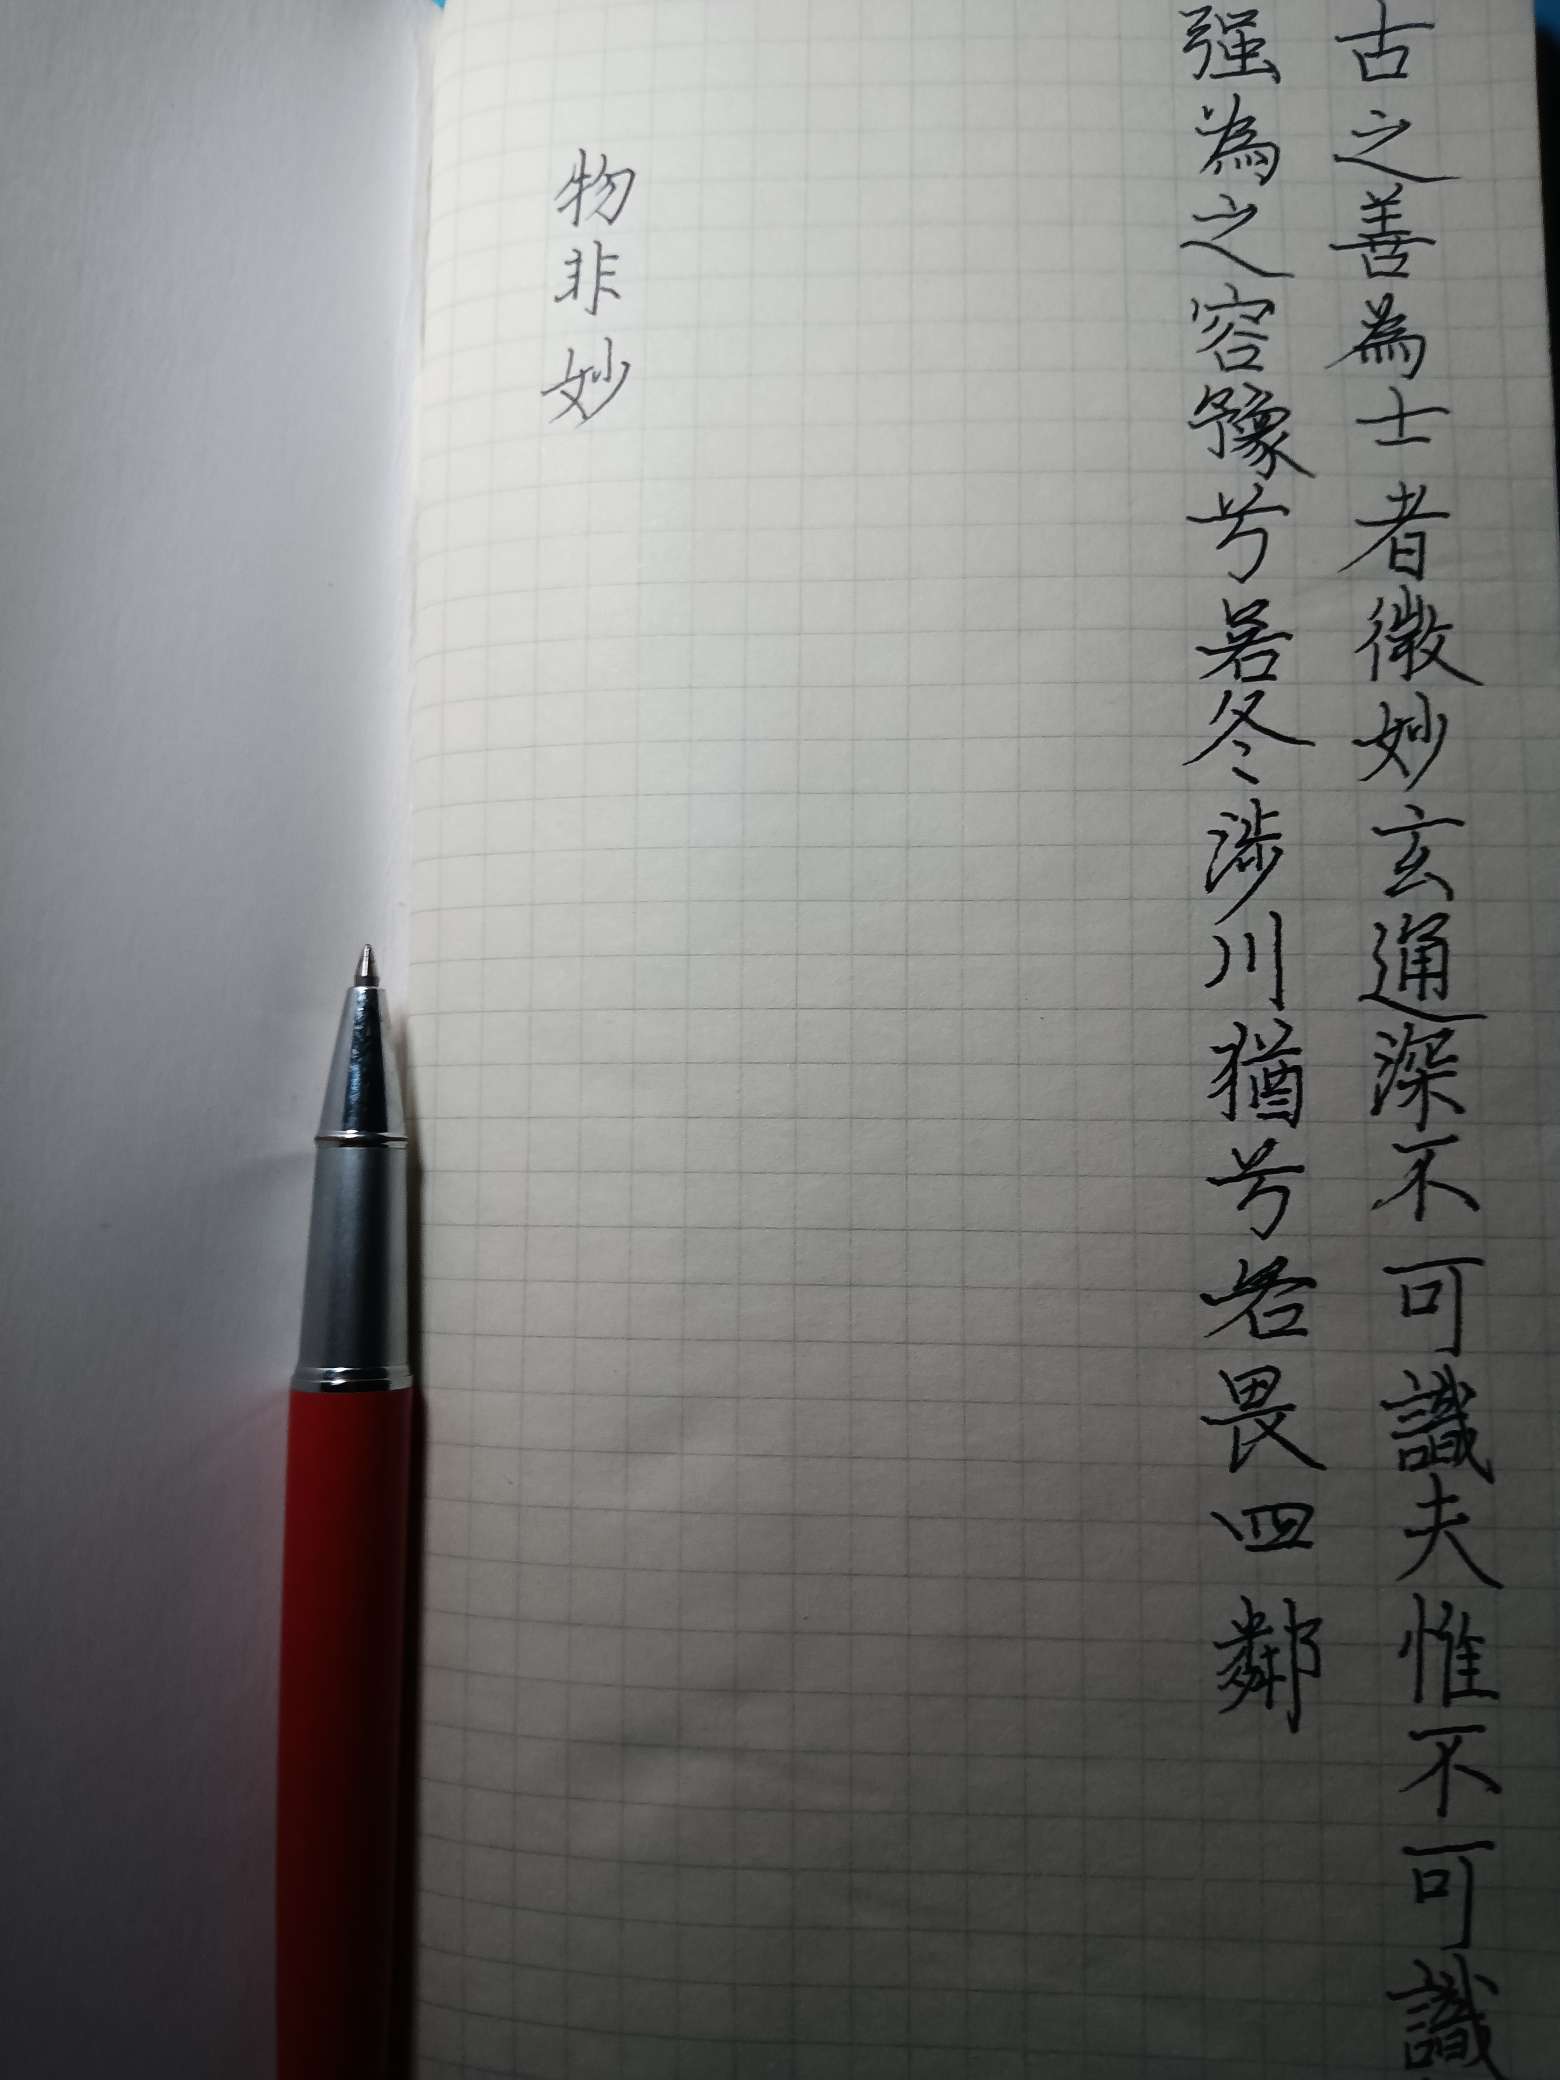 古之善為士者微妙玄通深不可識夫惟不可識
强為之容豫兮若冬涉川猶兮若畏四鄰
物非妙